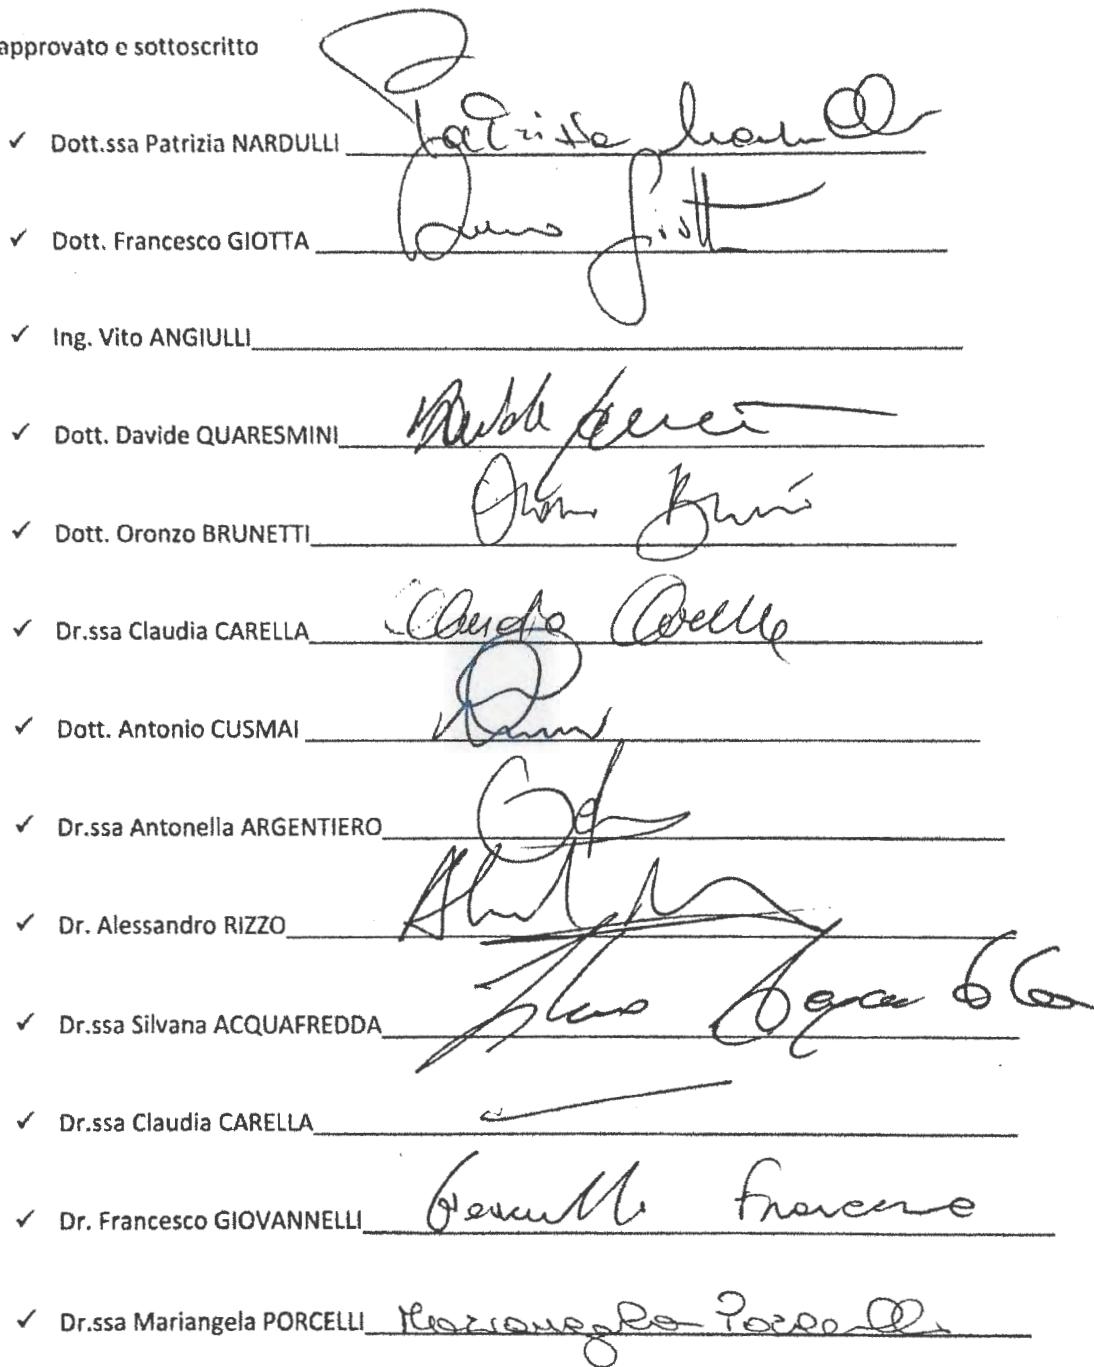 approvato e sottoscritto
✓ Dott.ssa Patrizia NARDULLI Patrizia Nardulli
✓ Dott. Francesco GIOTTA Giotta
✓ Ing. Vito ANGIULLI
✓ Dott. Davide QUARESMINI Davide
✓ Dott. Oronzo BRUNETTI
✓ Dr.ssa Claudia CARELLA Claudia Carella
✓ Dott. Antonio CUSMAI
✓ Dr.ssa Antonella ARGENTIERO
✓ Dr. Alessandro RIZZO
✓ Dr.ssa Silvana ACQUAFREDDA
✓ Dr.ssa Claudia CARELLA
✓ Dr. Francesco GIOVANNELLI Francesco
✓ Dr.ssa Mariangela PORCELLI Mariangela Porcelli